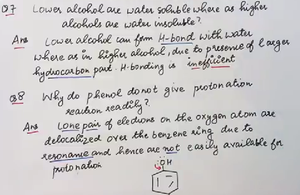 Q7 Lower alcohol are water soluble where as higher
alcohols are water insoluble?.
Ans Lower alcohol can form H-bond with water
where as in higher alcohol, due to presence of larger
hydrocarbon part H-bonding is inefficient
Q8 Why do phenol do not give protonation
reaction readily?
Ans Lone pair of electrons on the oxygen atom are
delocalized over the benzene ring due to
resonance and hence are not easily available for
protonation
:OH